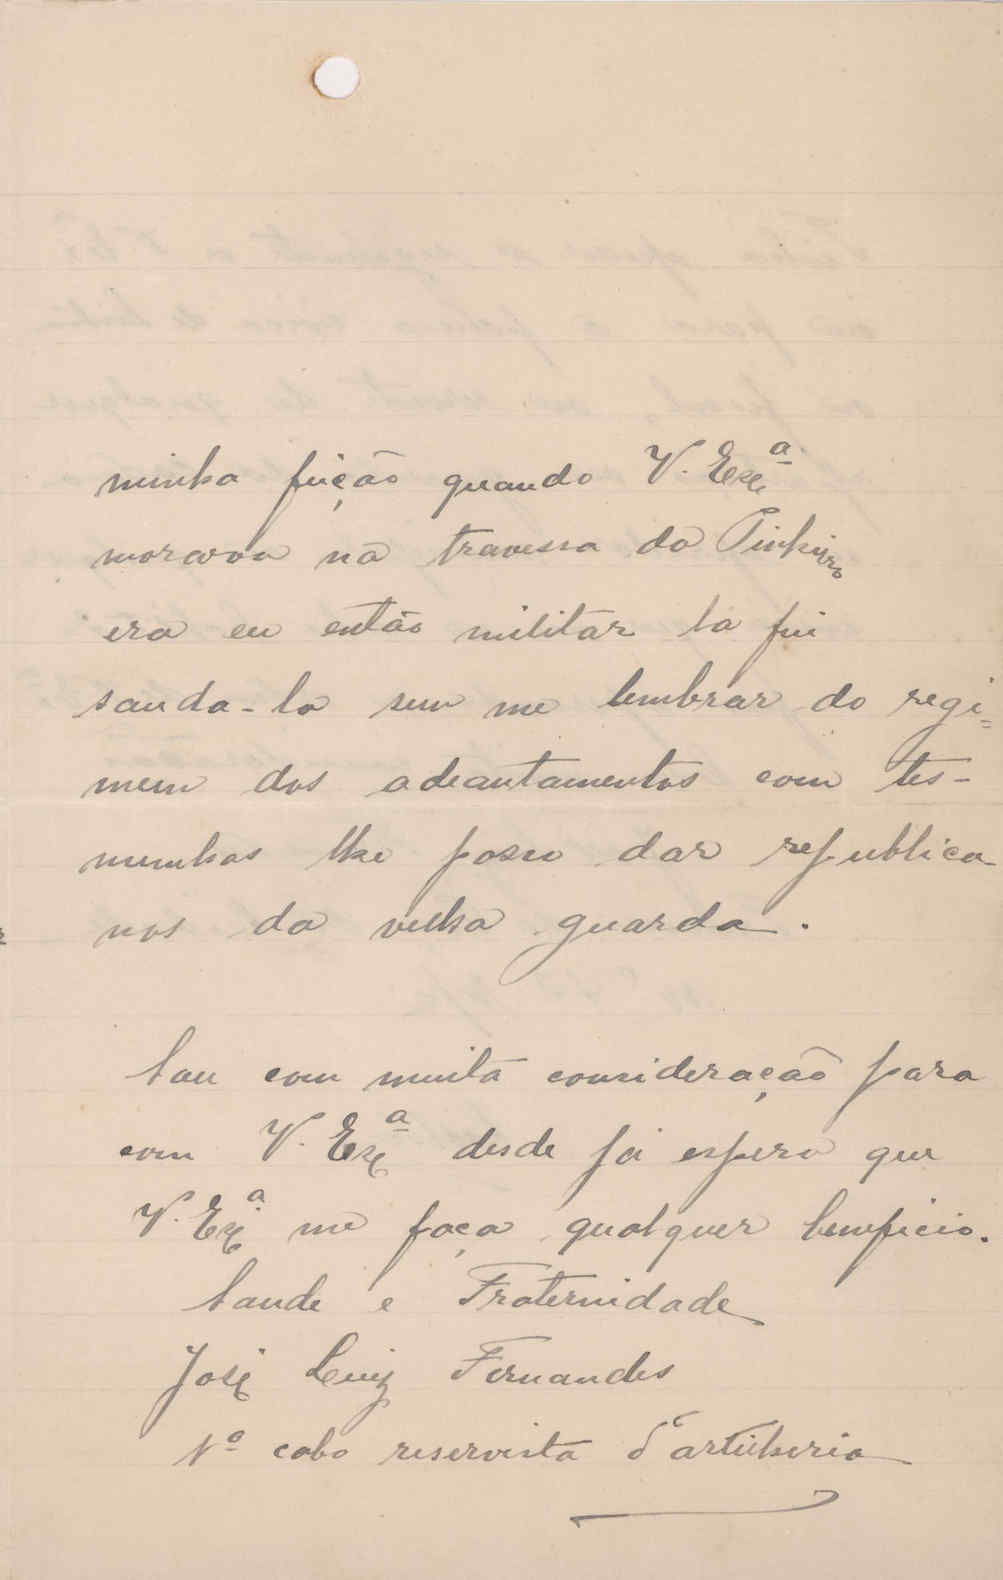 minha feição quando V. Exª
morava na travessa do Pinheiro
era eu então militar la fui
sauda-lo sem me lembrar do regi=
mem dos adeantamentos com tes-
munhas lhe posso dar republica
nos da velha guarda.
Sou com muita consideração para
com V. Exª desde já espero que
V. Exª me faça qualquer beneficio.
Saude e Fraternidade
José Luiz Fernandes
1º cabo reservista d'artilheria